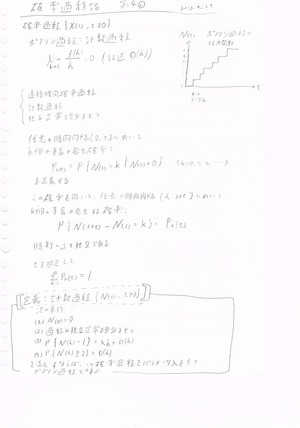 確率過程論 第4回
確率過程{X(t), t≥0}
ポアソン過程:計数過程
lim h→0 o(h)/h = 0
N(t) ポアソン過程の
連続時間確率過程
計数過程
独立定常増分をもつ
任意の時間内区間(0, t]において
k個の事象の発生確率:
Pk(t) = P{N(t) = k | N(0) = 0} (k=0, 1, 2, ...)
を定義する
この確率を用いて、任意の時間内区間(s, s+t]において
k個の事象の発生する確率:
P{N(s+t) - N(s) = k} = Pk(t)
時刻sと独立である
tを固定して
Σ k=0 ∞ Pk(t) = 1
定義:計数過程{N(t), t≥0}
次の条件
(a) N(0) = 0
(b) 過程は独立定常増分をもつ
(c) P{N(h) = 1} = λh + o(h)
(d) P{N(h) ≥ 2} = o(h)
を満たすならば、この確率過程をパラメータλをもつ
ポアソン過程である